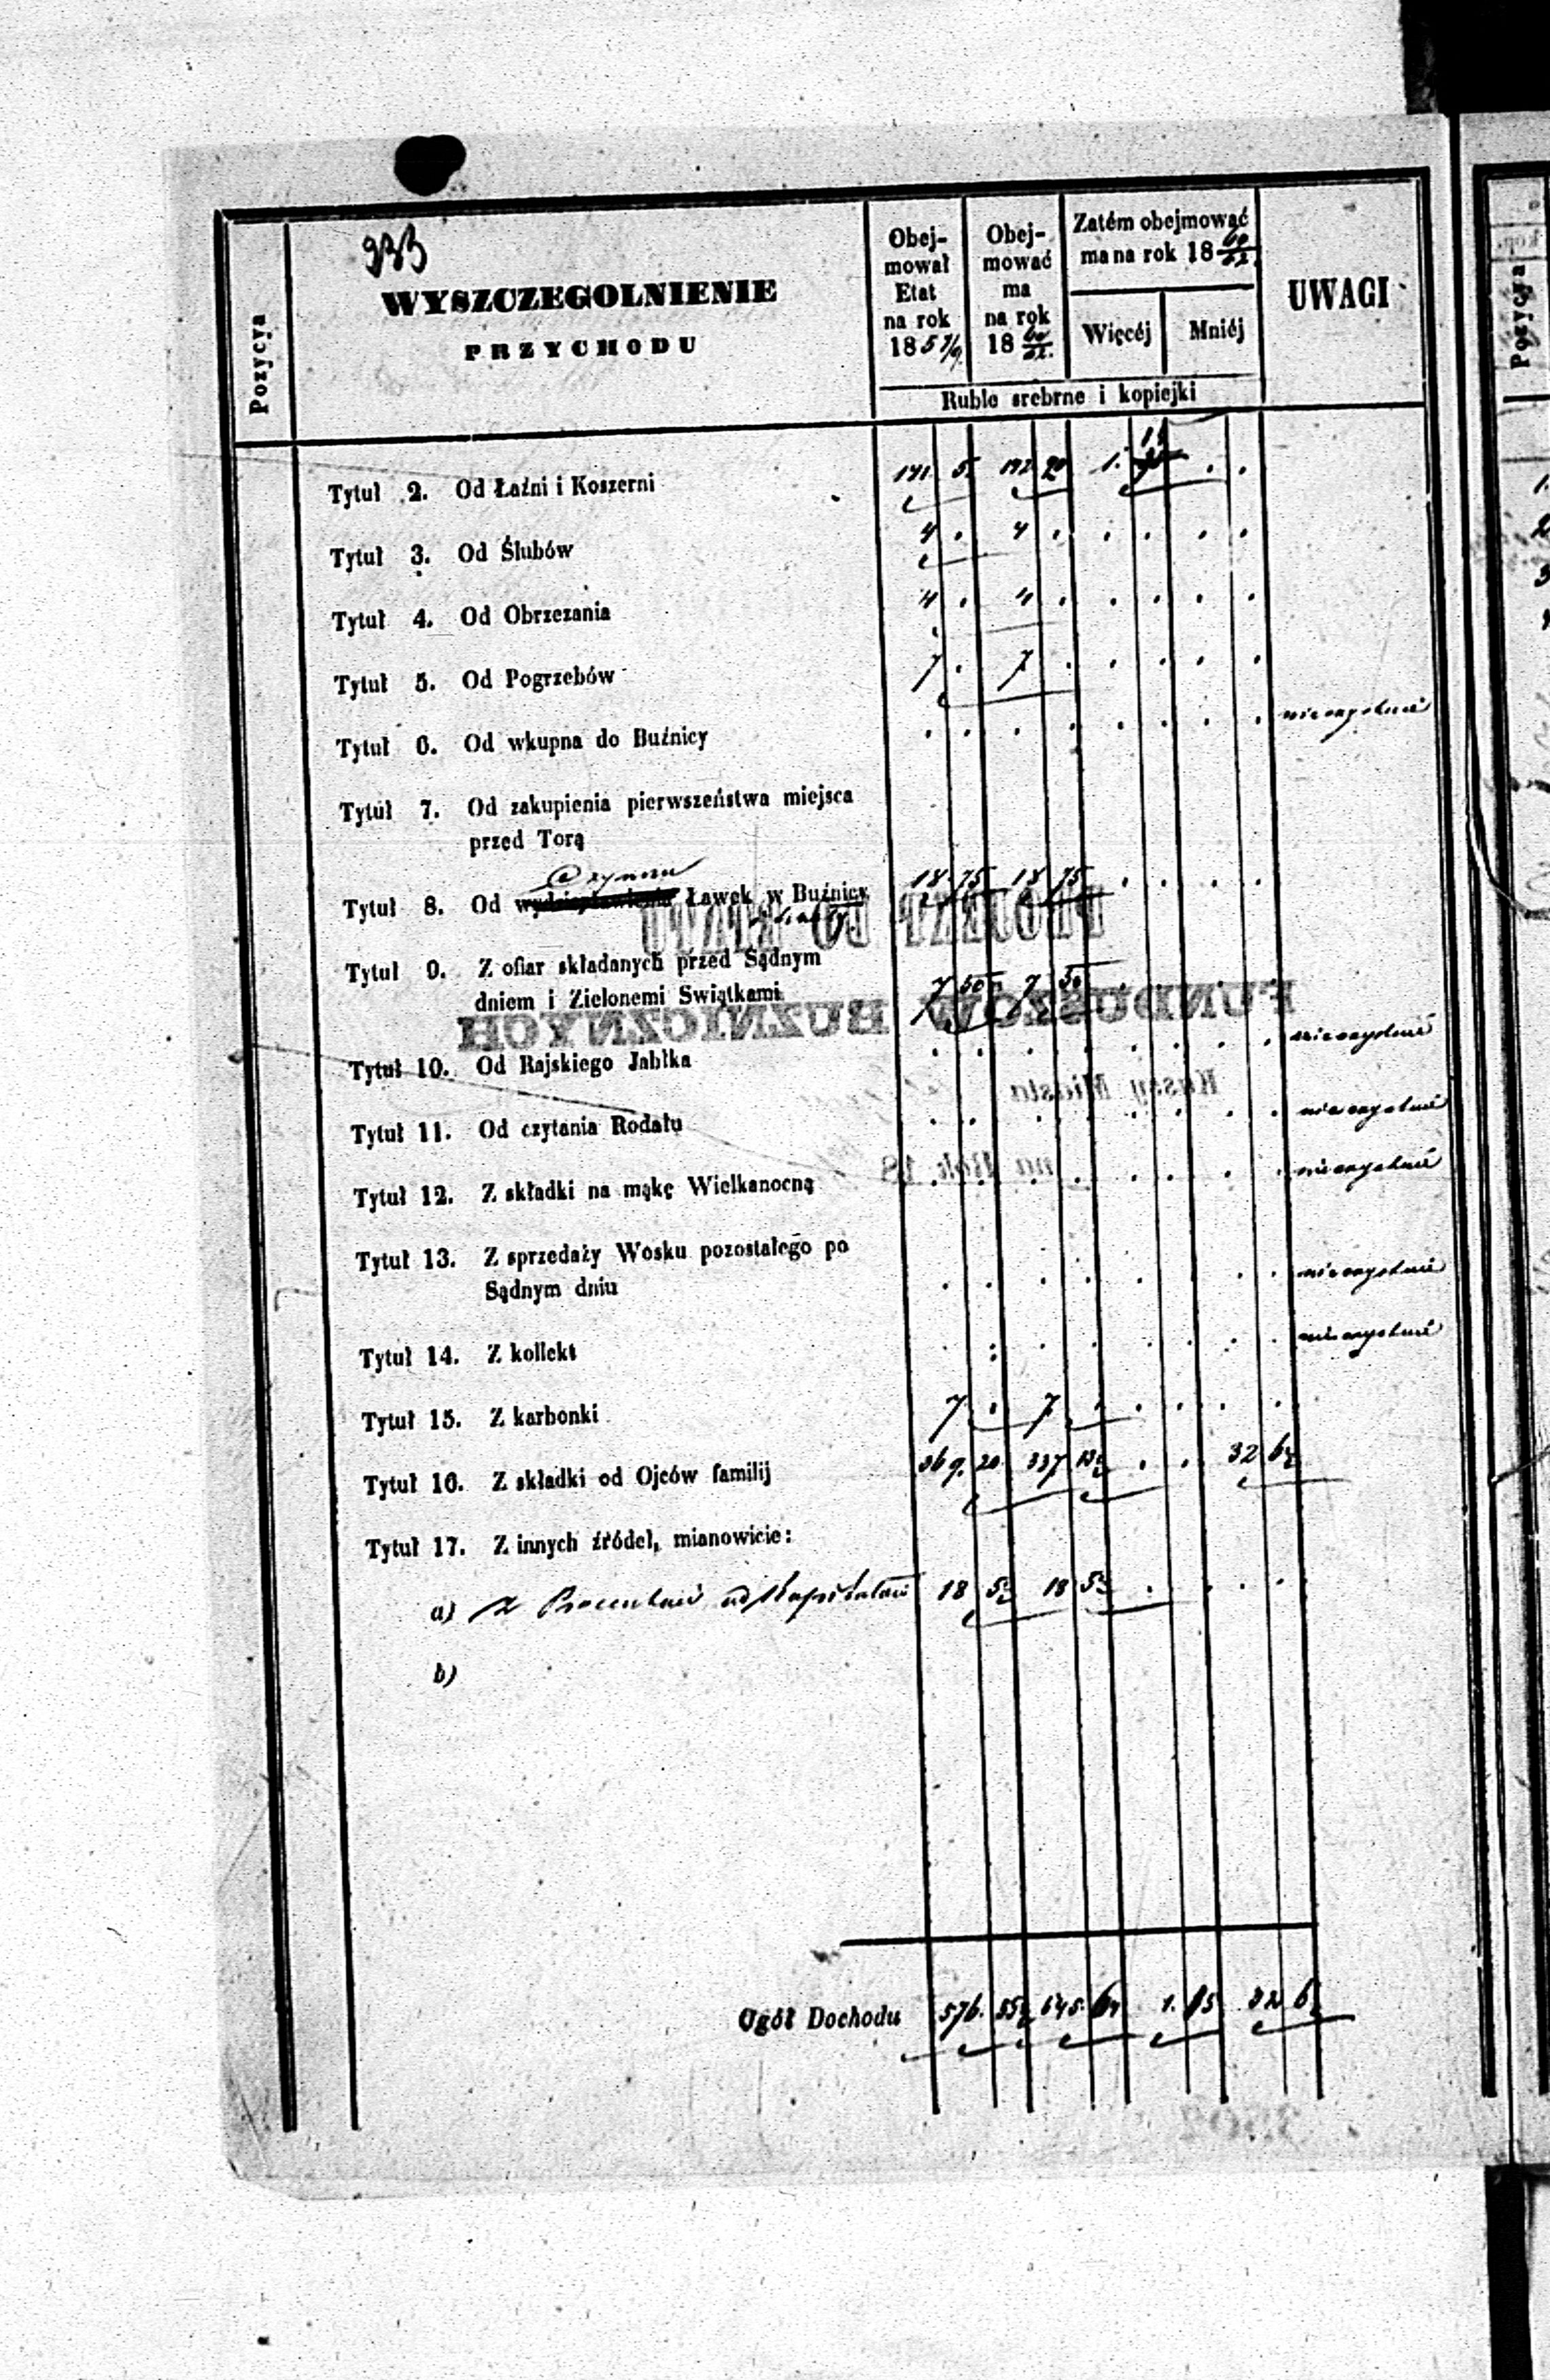 933
WYSZCZEGOLNIENIE
PRZYCHODU
Pozycya
Obej-
mował
Etat
na rok
18 57/9.
Obej-
mować
ma
na rok
18 60/62.
Zatém obejmować
ma na rok 18 60/62.
Więcéj
Mniéj
UWAGI
Ruble srebrne i kopiejki
Tytuł 2. Od Łaźni i Koszerni 141. 5. 142 20 1. 15 . .
Tytuł 3. Od Ślubów 4 . 4 . . . . .
Tytuł 4. Od Obrzezania 4 . 4 . . . . .
Tytuł 5. Od Pogrzebów 7 . 7 . . . . .
Tytuł 6. Od wkupna do Buźnicy . . . . . . . .
Tytuł 7. Od zakupienia pierwszeństwa miejsca
przed Torą
Czynszu
Tytuł 8. Od Ławek w Buźnicy 18 75 18 75 . . . .
Tytuł 9. Z ofiar składanych przed Sądnym
dniem i Zielonemi Swiątkami 7 50 7 50 . . . .
Tytuł 10. Od Rajskiego Jabłka . . . . . . . .
Tytuł 11. Od czytania Rodału . . . . . . . .
Tytuł 12. Z składki na mąkę Wielkanocną . . . . . . . .
Tytuł 13. Z sprzedaży Wosku pozostałego po
Sądnym dniu . . . . . . . .
Tytuł 14. Z kollekt . . . . . . . .
Tytuł 15. Z karbonki 7 . 7 . . . . .
Tytuł 16. Z składki od Ojców familij 369. 20 337 13½ . . 32 6½
Tytuł 17. Z innych źródeł, mianowicie:
a) Z Procentów od Kapitałów 18 5½ 18 5½ . . . .
b)
Ogół Dochodu 576. 55½ 545. 64 1. 15 32 6½
FUNDUSZÓW BUZNICZNYCH
Kassy Miasta
na Rok 18
Pozycya